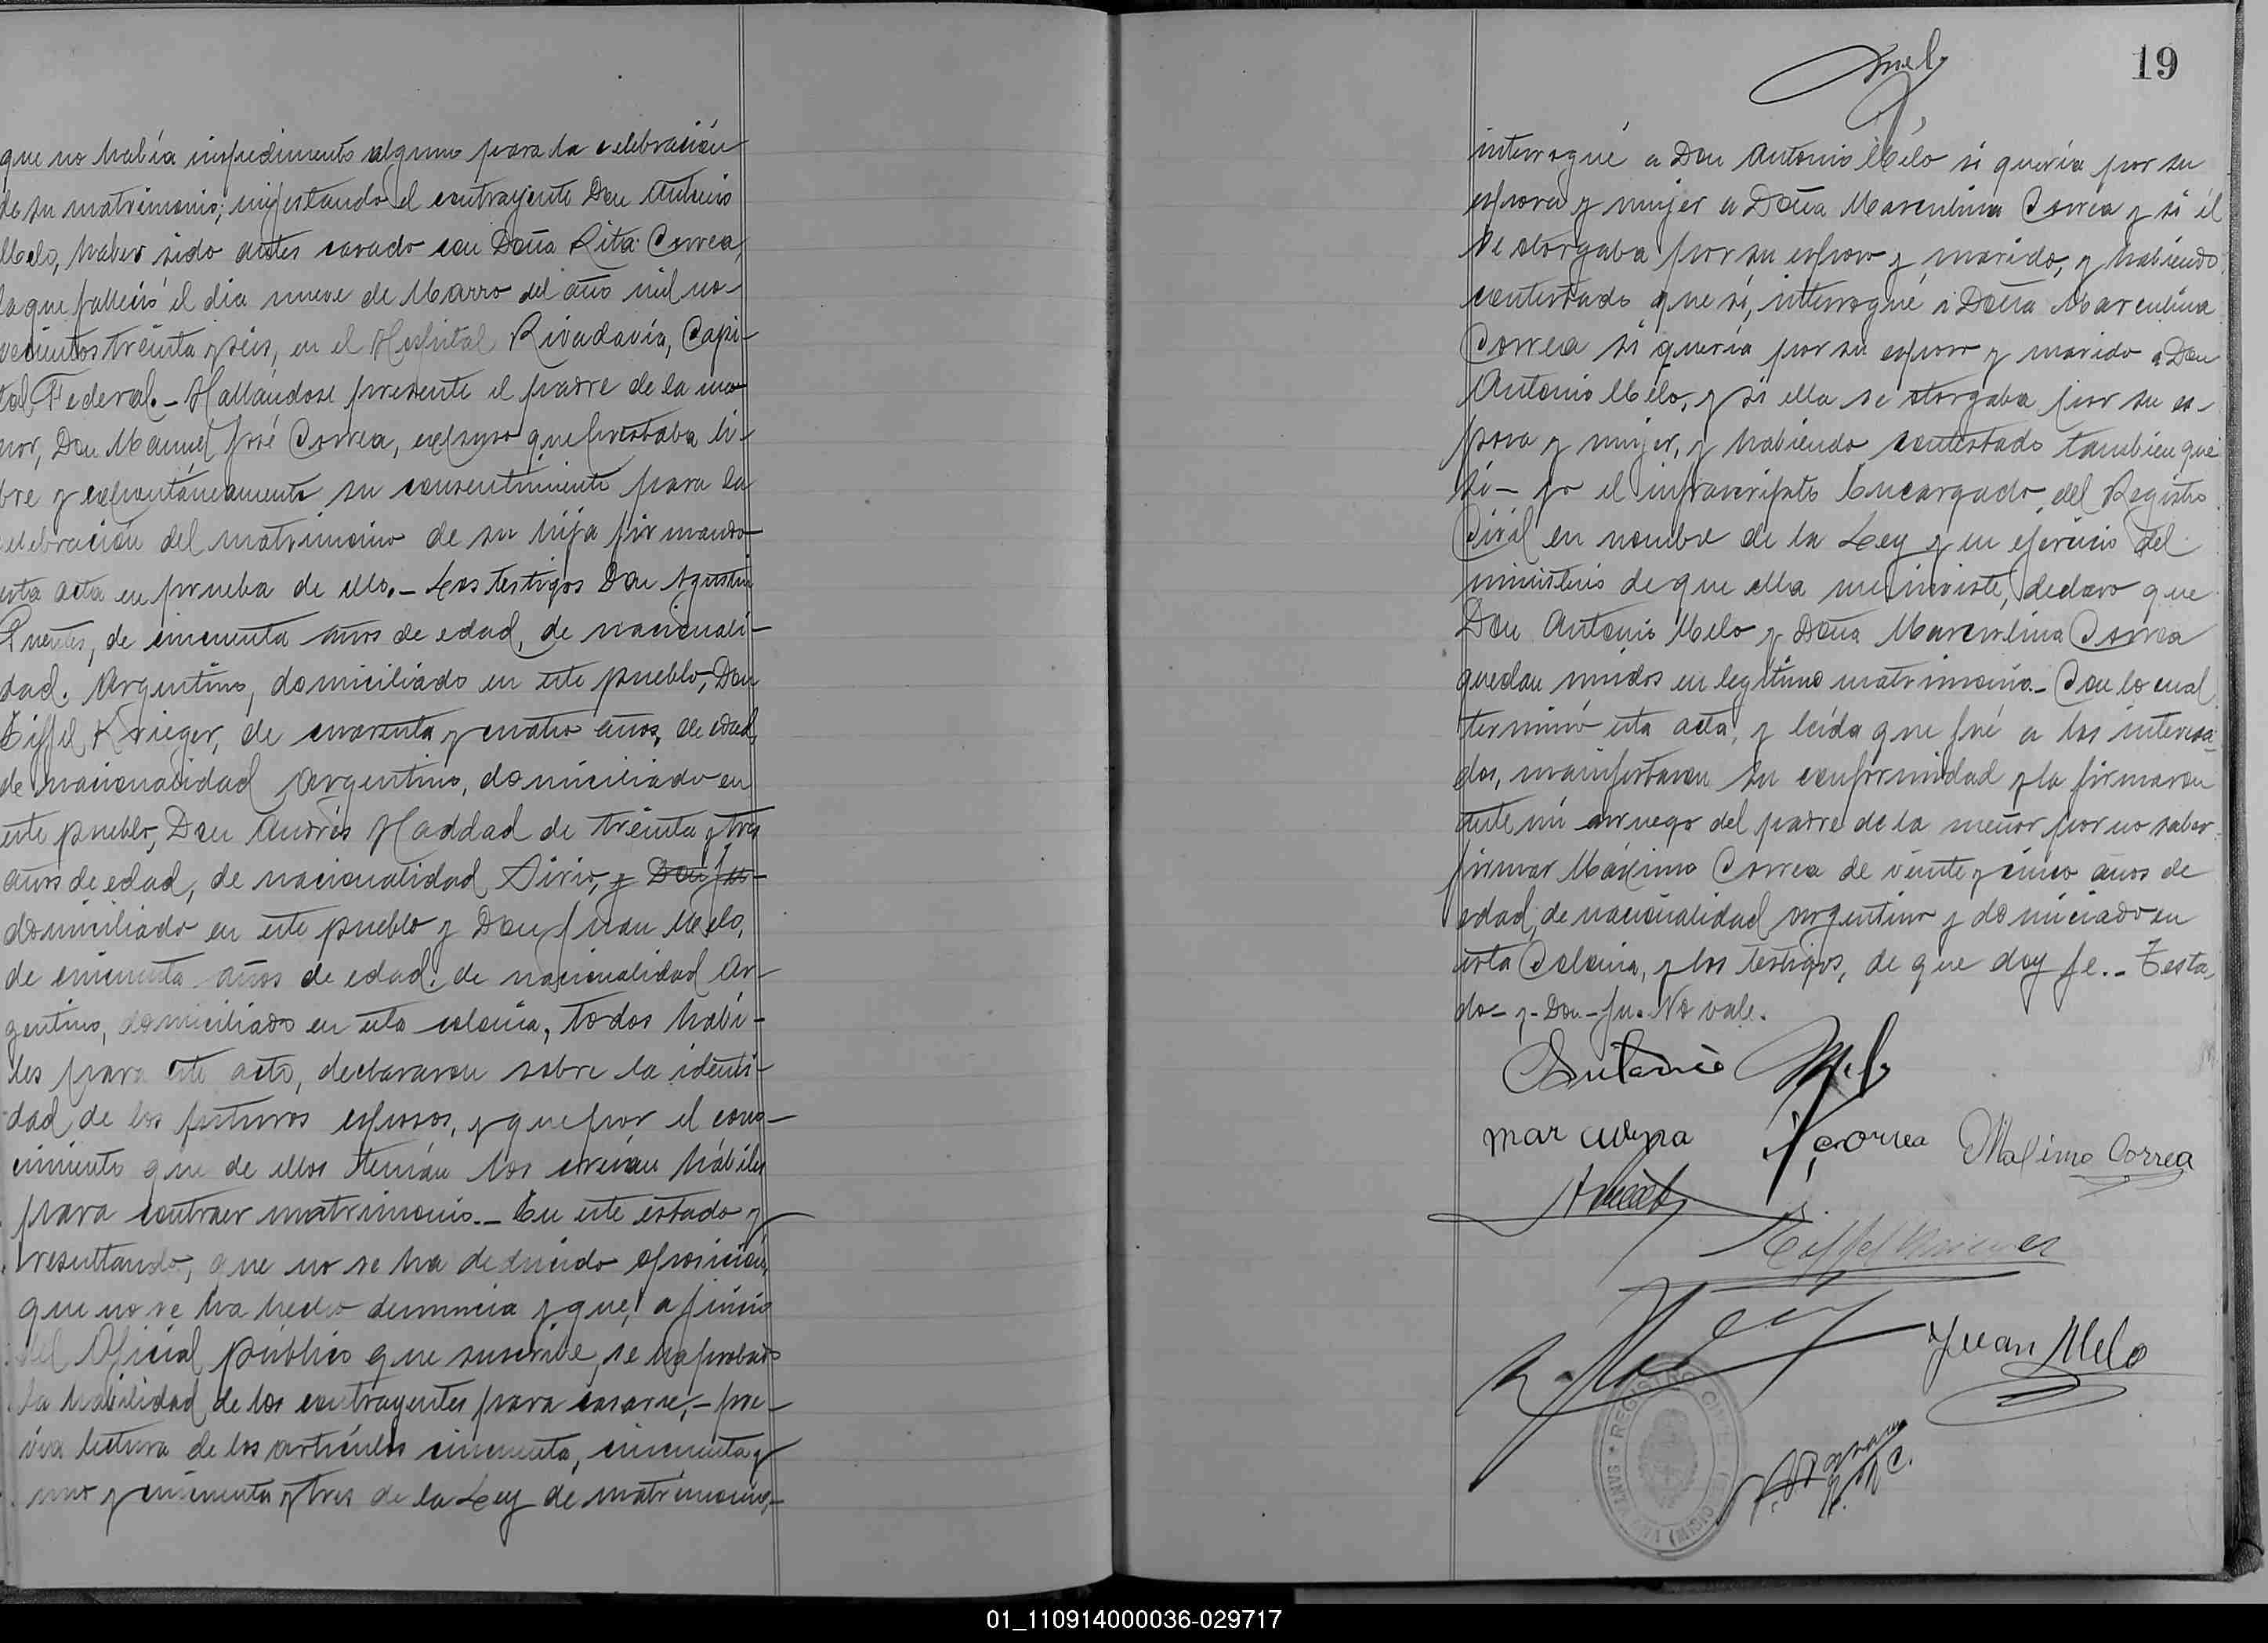 que no había impedimento alguno para la celebración
de su matrimonio; manifestando el contrayente Don Antonio
Melo, haber sido antes casado con Doña Rita Correa,
la que falleció el dia nueve de Marzo del año mil no-
vecientos treinta y seis, en el Hospital Rivadavia, Capi-
tal Federal.- Hallándose presente el padre de la me-
nor, Don Manuel José Correa, expuso que prestaba li-
bre y espontáneamente su consentimiento para la
celebración del matrimonio de su hija firmando
esta acta en prueba de ello.- Los testigos Don Agustín
Puentes, de cincuenta años de edad, de nacionali-
dad. Argentino, domiciliado en este pueblo, Don
Eiffel Krieger, de cuarenta y cuatro años, de edad,
de nacionalidad Argentino, domiciliado en
este pueblo, Don Andrés Haddad de treinta y tres
años de edad, de nacionalidad Sirio, y Don Ju-
domiciliado en este pueblo y Don Juan Melo,
de cincuenta años de edad. de nacionalidad Ar-
gentino, domiciliado en esta colonia, todos hábi-
les para este acto, declararon sobre la identi-
dad de los futuros esposos, y que por el cono-
cimiento que de ellos tenían los creían hábiles
para contraer matrimonio.- En este estado y
resultando, que no se ha deducido oposición,
que no se ha hecho denuncia y que, a juicio
del Oficial público que suscribe, se ha probado
la habilidad de los contrayentes para casarse,- pre-
via lectura de los artículos cincuenta, cincuenta y
uno y cincuenta y tres de la Ley de matrimonio,-
19
interrogué a Don Antonio Melo si quería por su
esposa y mujer a Doña Marculina Correa y si él
se otorgaba por su esposo y marido, y habiendo
contestado que sí, interrogué a Doña Marculina
Correa si quería por su esposo y marido a Don
Antonio Melo, y si ella se otorgaba por su es-
posa y mujer, y habiendo contestado tambien que
sí- yo el infrascripto Encargado del Registro
Civil en nombre de la Ley y en ejercicio del
ministerio de que ella me inviste, declaro que
Don Antonio Melo y Doña Marculina Correa
quedan unidos en legítimo matrimonio.- Con lo cual
terminó esta acta, y leída que fué a los interesa-
dos, manifestaron su conformidad y la firmaron
ante mí a ruego del padre de la menor por no saber
firmar Máximo Correa de veinte y cinco años de
edad, de nacionalidad argentino y domiciado en
esta Colonia, y los testigos, de que doy fe.- Testa-
do- y- Don- Ju. No vale.
Antonio Melo
Correa
Masimo Correa
Eiffel Krieger
Juan Melo
REGISTRO CIVIL SANTA ANA (MISIONES)
01_110914000036-029717